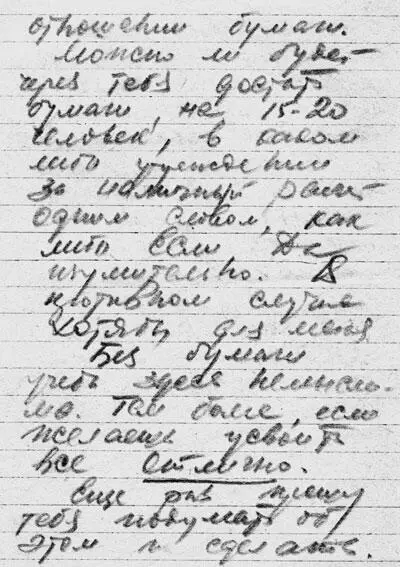 отношении бумаг.
Можно ли будет
через тебя достать
бумаги, на 15-20
человек, в каком
либо учреждении
за наличный расчет
одним словом, как
либо если Да
изумительно. В
противном случае
Хотябы для меня
Без бумаги
учеба здесь немысли-
ма. Тем более, если
желаешь усвоить
все отлично.
Еще раз прошу
тебя подумать об
этом и сделать.